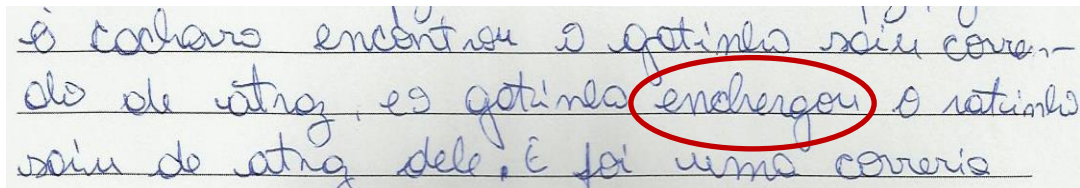 o cachorro encontrou o gatinho saiu corren-
do de atraz, eo gatinho enchergou o ratinho
saiu de atraz dele. E foi uma correria